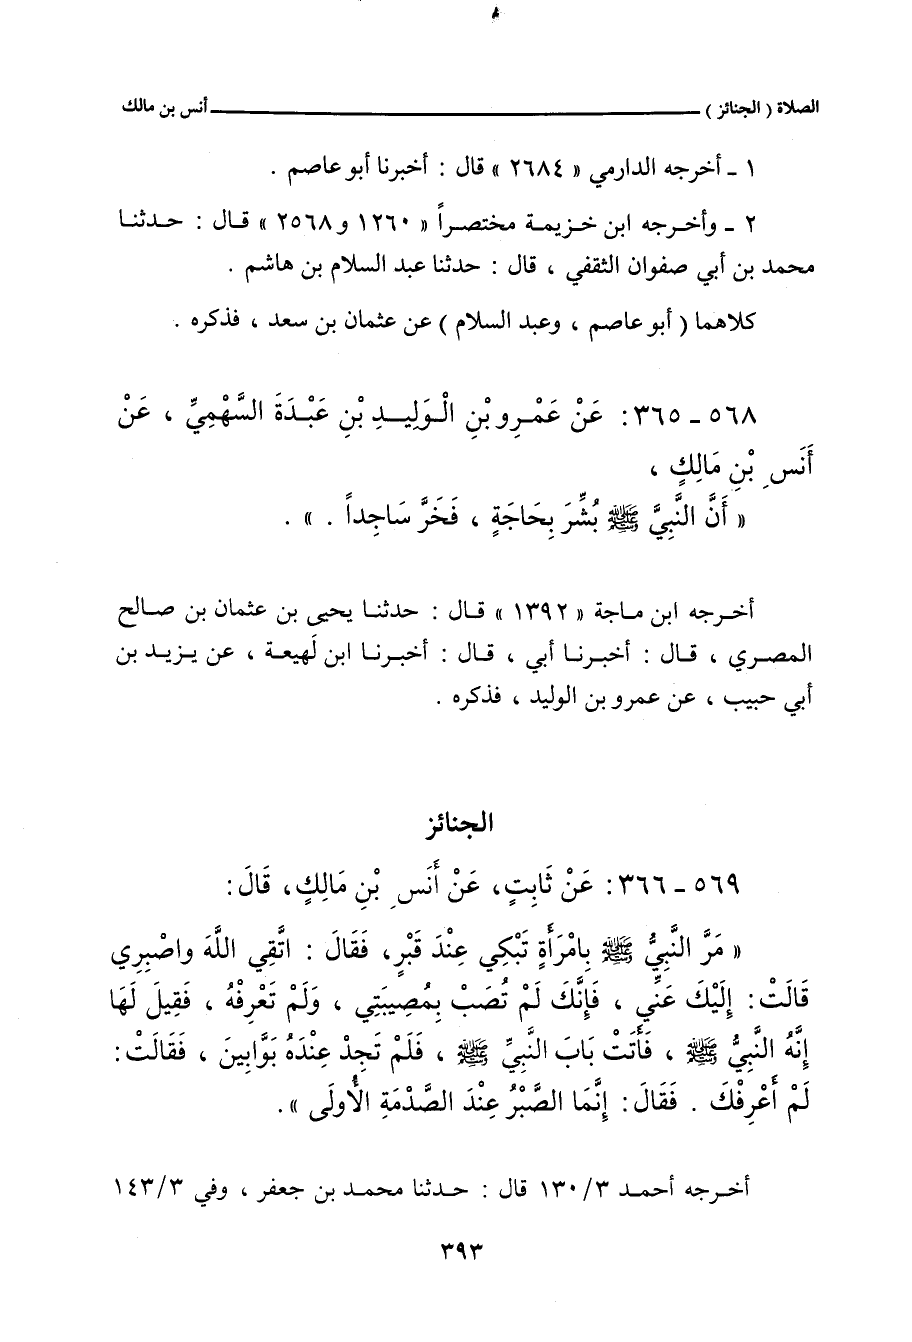 الصلاة ( الجنائز ) أنس بن مالك
١ ـ أخرجه الدارمي « ٢٦٨٤ » قال : أخبرنا أبو عاصم .
٢ ـ وأخرجه ابن خزيمة مختصراً « ١٢٦٠ و ٢٥٦٨ » قال : حدثنا
محمد بن أبي صفوان الثقفي ، قال : حدثنا عبد السلام بن هاشم .
كلاهما ( أبو عاصم ، وعبد السلام ) عن عثمان بن سعد ، فذكره .
٥٦٨ ـ ٣٦٥: عَنْ عَمْرِو بْنِ الْوَلِيدِ بْنِ عَبْدَةَ السَّهْمِيِّ ، عَنْ
أَنَسِ بْنِ مَالِكٍ ،
« أَنَّ النَّبِيَّ ﷺ بُشِّرَ بِحَاجَةٍ ، فَخَرَّ سَاجِداً . » .
أخرجه ابن ماجة « ١٣٩٢ » قال : حدثنا يحيى بن عثمان بن صالح
المصري ، قال : أخبرنا أبي ، قال : أخبرنا ابن لَهيعة ، عن يزيد بن
أبي حبيب ، عن عمرو بن الوليد ، فذكره .
الجنائز
٥٦٩ ـ ٣٦٦: عَنْ ثَابِتٍ، عَنْ أَنَسِ بْنِ مَالِكٍ، قَالَ:
« مَرَّ النَّبِيُّ ﷺ بِامْرَأَةٍ تَبْكِي عِنْدَ قَبْرٍ، فَقَالَ : اتَّقِي اللَّهَ واصْبِرِي
قَالَتْ: إِلَيْكَ عَنِّي ، فَإِنَّكَ لَمْ تُصَبْ بِمُصِيبَتِي ، وَلَمْ تَعْرِفْهُ ، فَقِيلَ لَهَا
إِنَّهُ النَّبِيُّ ﷺ ، فَأَتَتْ بَابَ النَّبِيِّ ﷺ ، فَلَمْ تَجِدْ عِنْدَهُ بَوَّابِينَ ، فَقَالَتْ:
لَمْ أَعْرِفْكَ . فَقَالَ: إِنَّمَا الصَّبْرُ عِنْدَ الصَّدْمَةِ الأُولَى ».
أخرجه أحمد ١٣٠/٣ قال : حدثنا محمد بن جعفر ، وفي ١٤٣/٣
٣٩٣